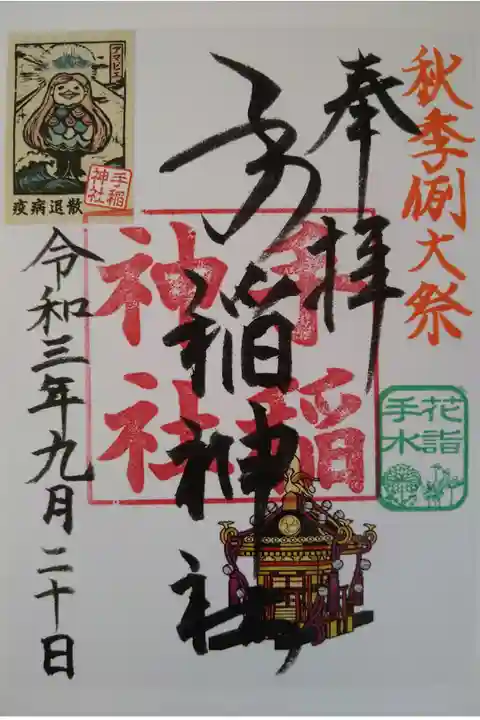 秋季例大祭
奉拝
手稲神社
手稲
神社
花詣
手水
アマビエ
疫病退散
手稲
神社
令和三年九月二十日